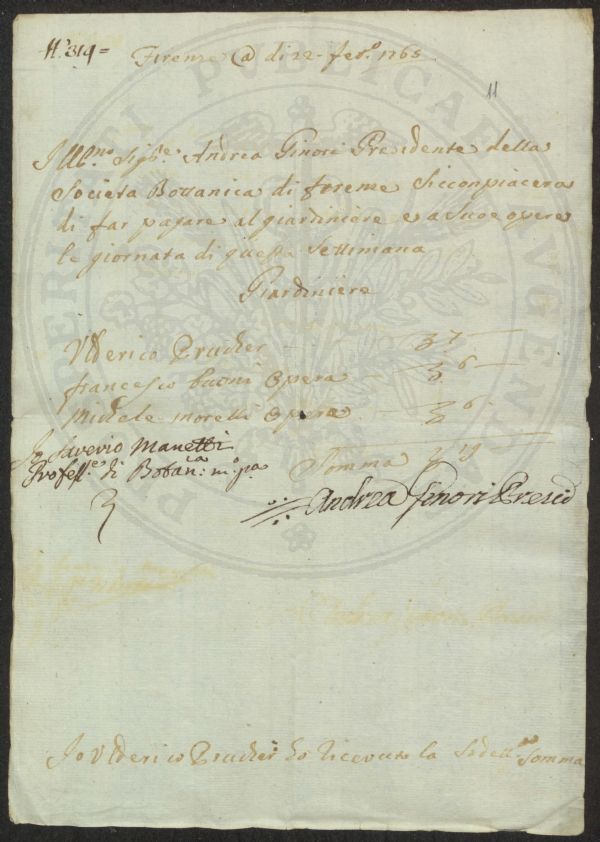 N.° 314 =
Firenze @ di 22 - fer.° 1765
11
Ill.mo Sig.re Andrea Ginori Presidente della
Societa Bottanica di firenze Si Conpiacera
di far pagare al giardiniere e a Sue opere
le giornata di questa Settimana
Giardiniere
Vlderico Prucher — 7
francesco buoni Opera — 6
Michele morelli Opera — 6
Somma 19
Io Saverio Manetti
Profess.e di Botan.ca m.o pa
Andrea Ginori Presid
Io Vlderico Prucher ho Riceuuto la Sudett Somma
PERITI PVBLICAE AVGENDAE